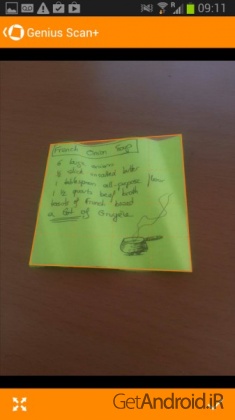 09:11
Genius Scan+
French Onion Soup
6 large onions
½ stick unsalted butter
1 tablespoon all-purpose flour
1 ½ quarts beef broth
of French bread
a lot of Gruyère
GetAndroid.iR